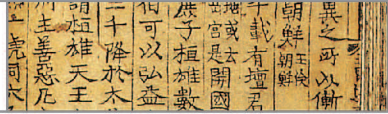 異之所以慚
朝鮮 王儉
朝鮮
千載有壇君
地或云
宮是
開國
庶子桓雄數
伯可以弘益
千降於太
謂桓雄天王
主善惡凡
虎同穴